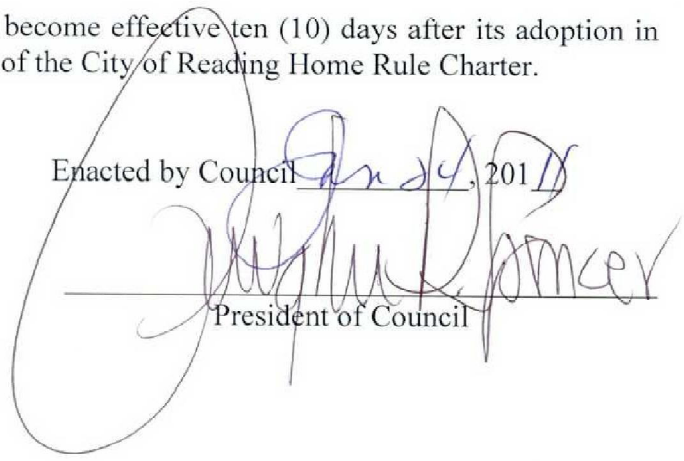 become effective ten (10) days after its adoption in
of the City of Reading Home Rule Charter.
Enacted by Council Jan 24, 2011
Spencer
President of Council